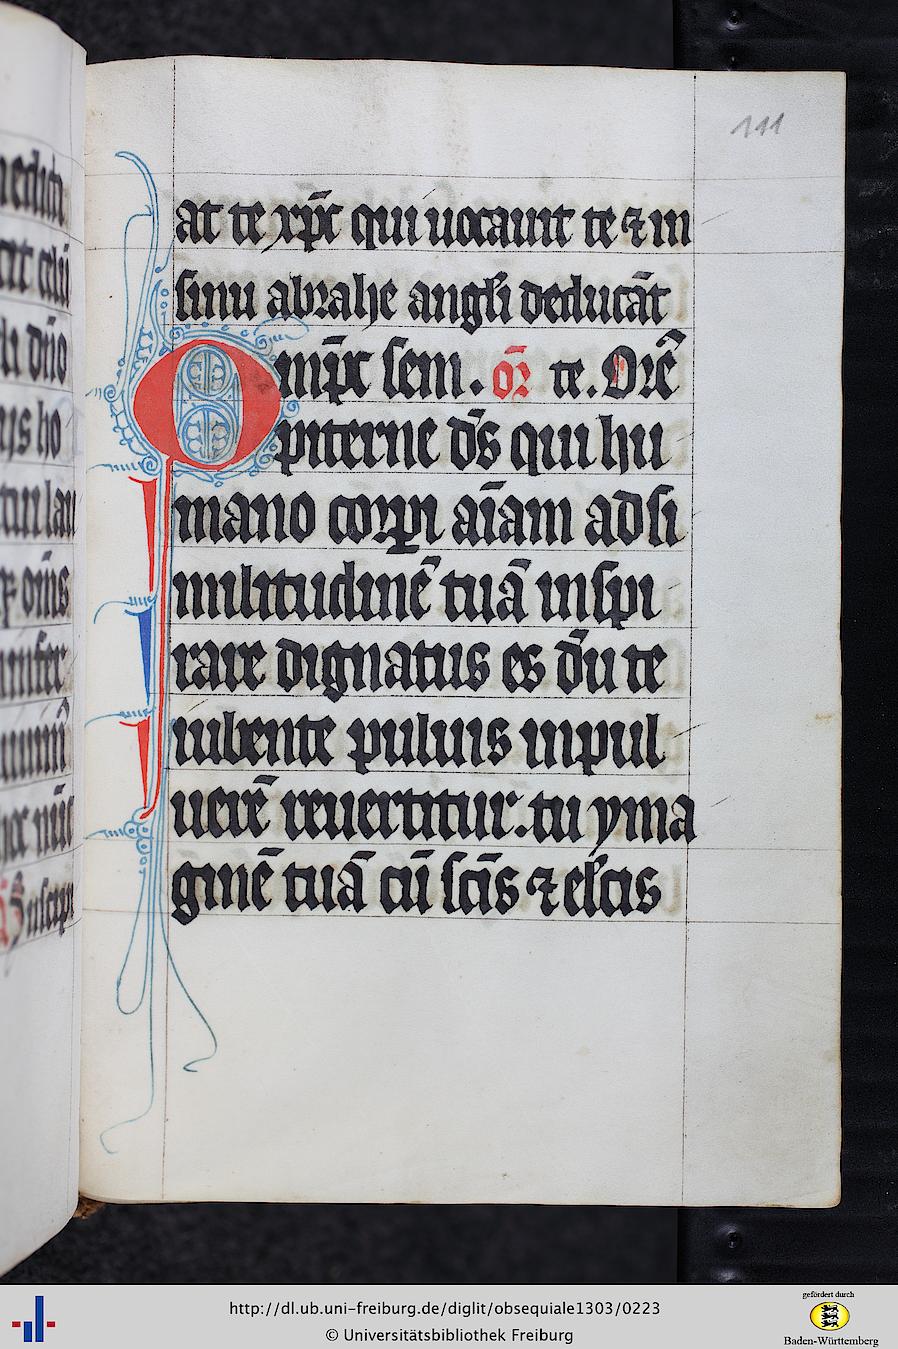 111
at te xp̄c qui uocauit te ⁊ in
sinu abrahe angl̄i deducāt
Omnp̄c sem. or̄ te. Orē
piterne dʼs qui hu
mano corpi aīam ad si
militudinē tuā inspi
rare dignatus es dū te
iubente puluis in pul
uerē reuertitur. tu yma
ginē tuā cū sc̄is ⁊ elc̄tis
http://dl.ub.uni-freiburg.de/diglit/obsequiale1303/0223
© Universitätsbibliothek Freiburg
gefördert durch
Baden-Württemberg